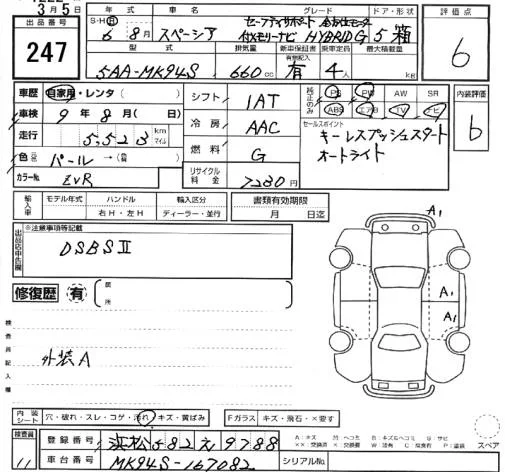 3月5日
出品番号 247
年式 車名 グレード ドア・形状 評価点
S・H・R 6年 8月 スペーシア セーフティサポート 全方位モニター 付メモリーナビ HYBRID G 5 箱 6
型式 排気量 新車保証書 乗車定員 最大積載量
有無記入
5AA-MK94S 660cc 有 4人 kg
車歴 自家用・レンタ ( ) シフト 1AT 純正のみ PS PW AW SR 内装評価
ABS エアB TV ナビ 6
車検 9年8月( 日) 冷房 AAC セールスポイント
走行 5,523 km マイル 燃料 G キーレスプッシュスタート
色 パール →( ) オートライト
カラーNo. ZVR リサイクル料金 7230円
輸入車 モデル年式 ハンドル 輸入区分 書類有効期限
年 右H・左H ディーラー・並行 月 日迄
出品店申告欄 ※注意事項等記載
DSBSⅡ
修復歴 有 箇所
A1
A1
A1
検査員記入欄
外装A
内装シート 穴・破れ・スレ・コゲ・汚れ・キズ・黄ばみ Fガラス キズ・飛石・×要す
検査員 11
登録番号 浜松582え9788
車台番号 MK94S-167082 シリアルNo.
A:キズ U:ヘコミ B:キズ&ヘコミ S:サビ
××:交換済 ×:交換 W:波有 C:腐食有 P:塗装 スペア